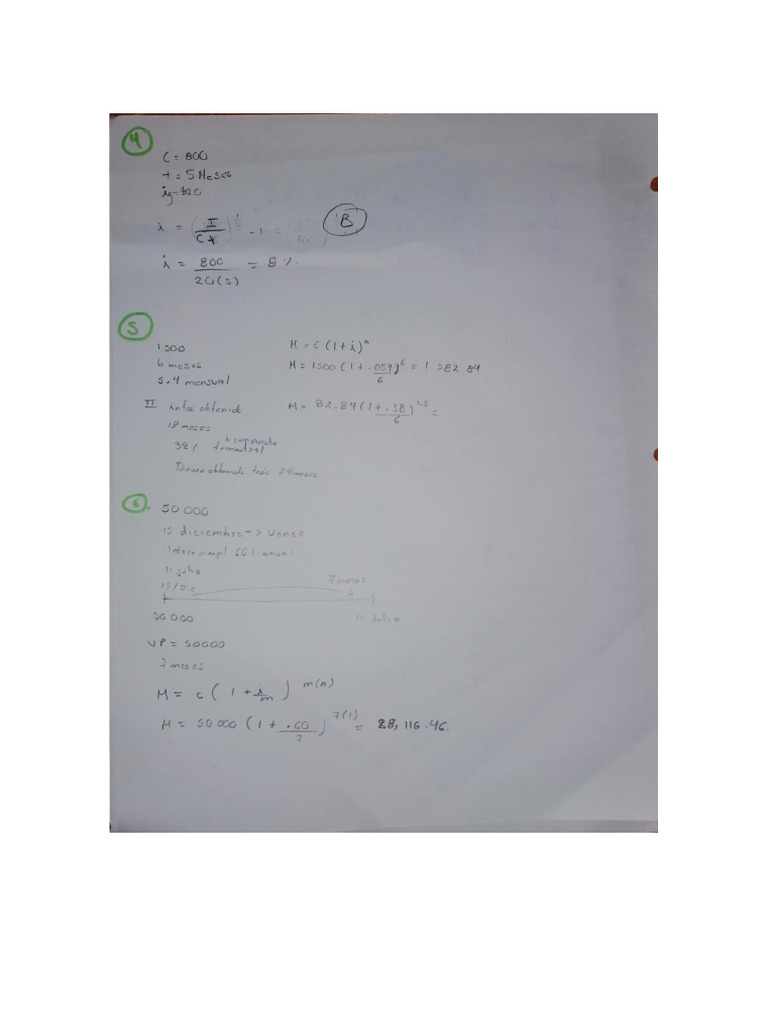 4
C = 800
t = 5 Meses
ig = 120
i = ( I / C t ) - 1 =
B
i = 800 / 20(5) = 8 %.
5
1500
6 meses
5.4 mensual
M = c (1 + i)ⁿ
M = 1500 (1 + .054 / 6)⁶ = 1 582.84
II interes obtenido
18 meses
38% i compuesto trimestral
Dinero obtenido trás 24 meses
M = 82.84 (1 + .38 / 6)^1.5 =
6.
50 000
15 diciembre -> vence
Interes simpl 60% anual
11 julio
15/Dic
7 meses
50 000
11 Julio
VP = 50000
7 meses
M = c ( 1 + i/m ) m(n)
M = 50 000 (1 + .60 / 7) 7(1) = 28,116.46.